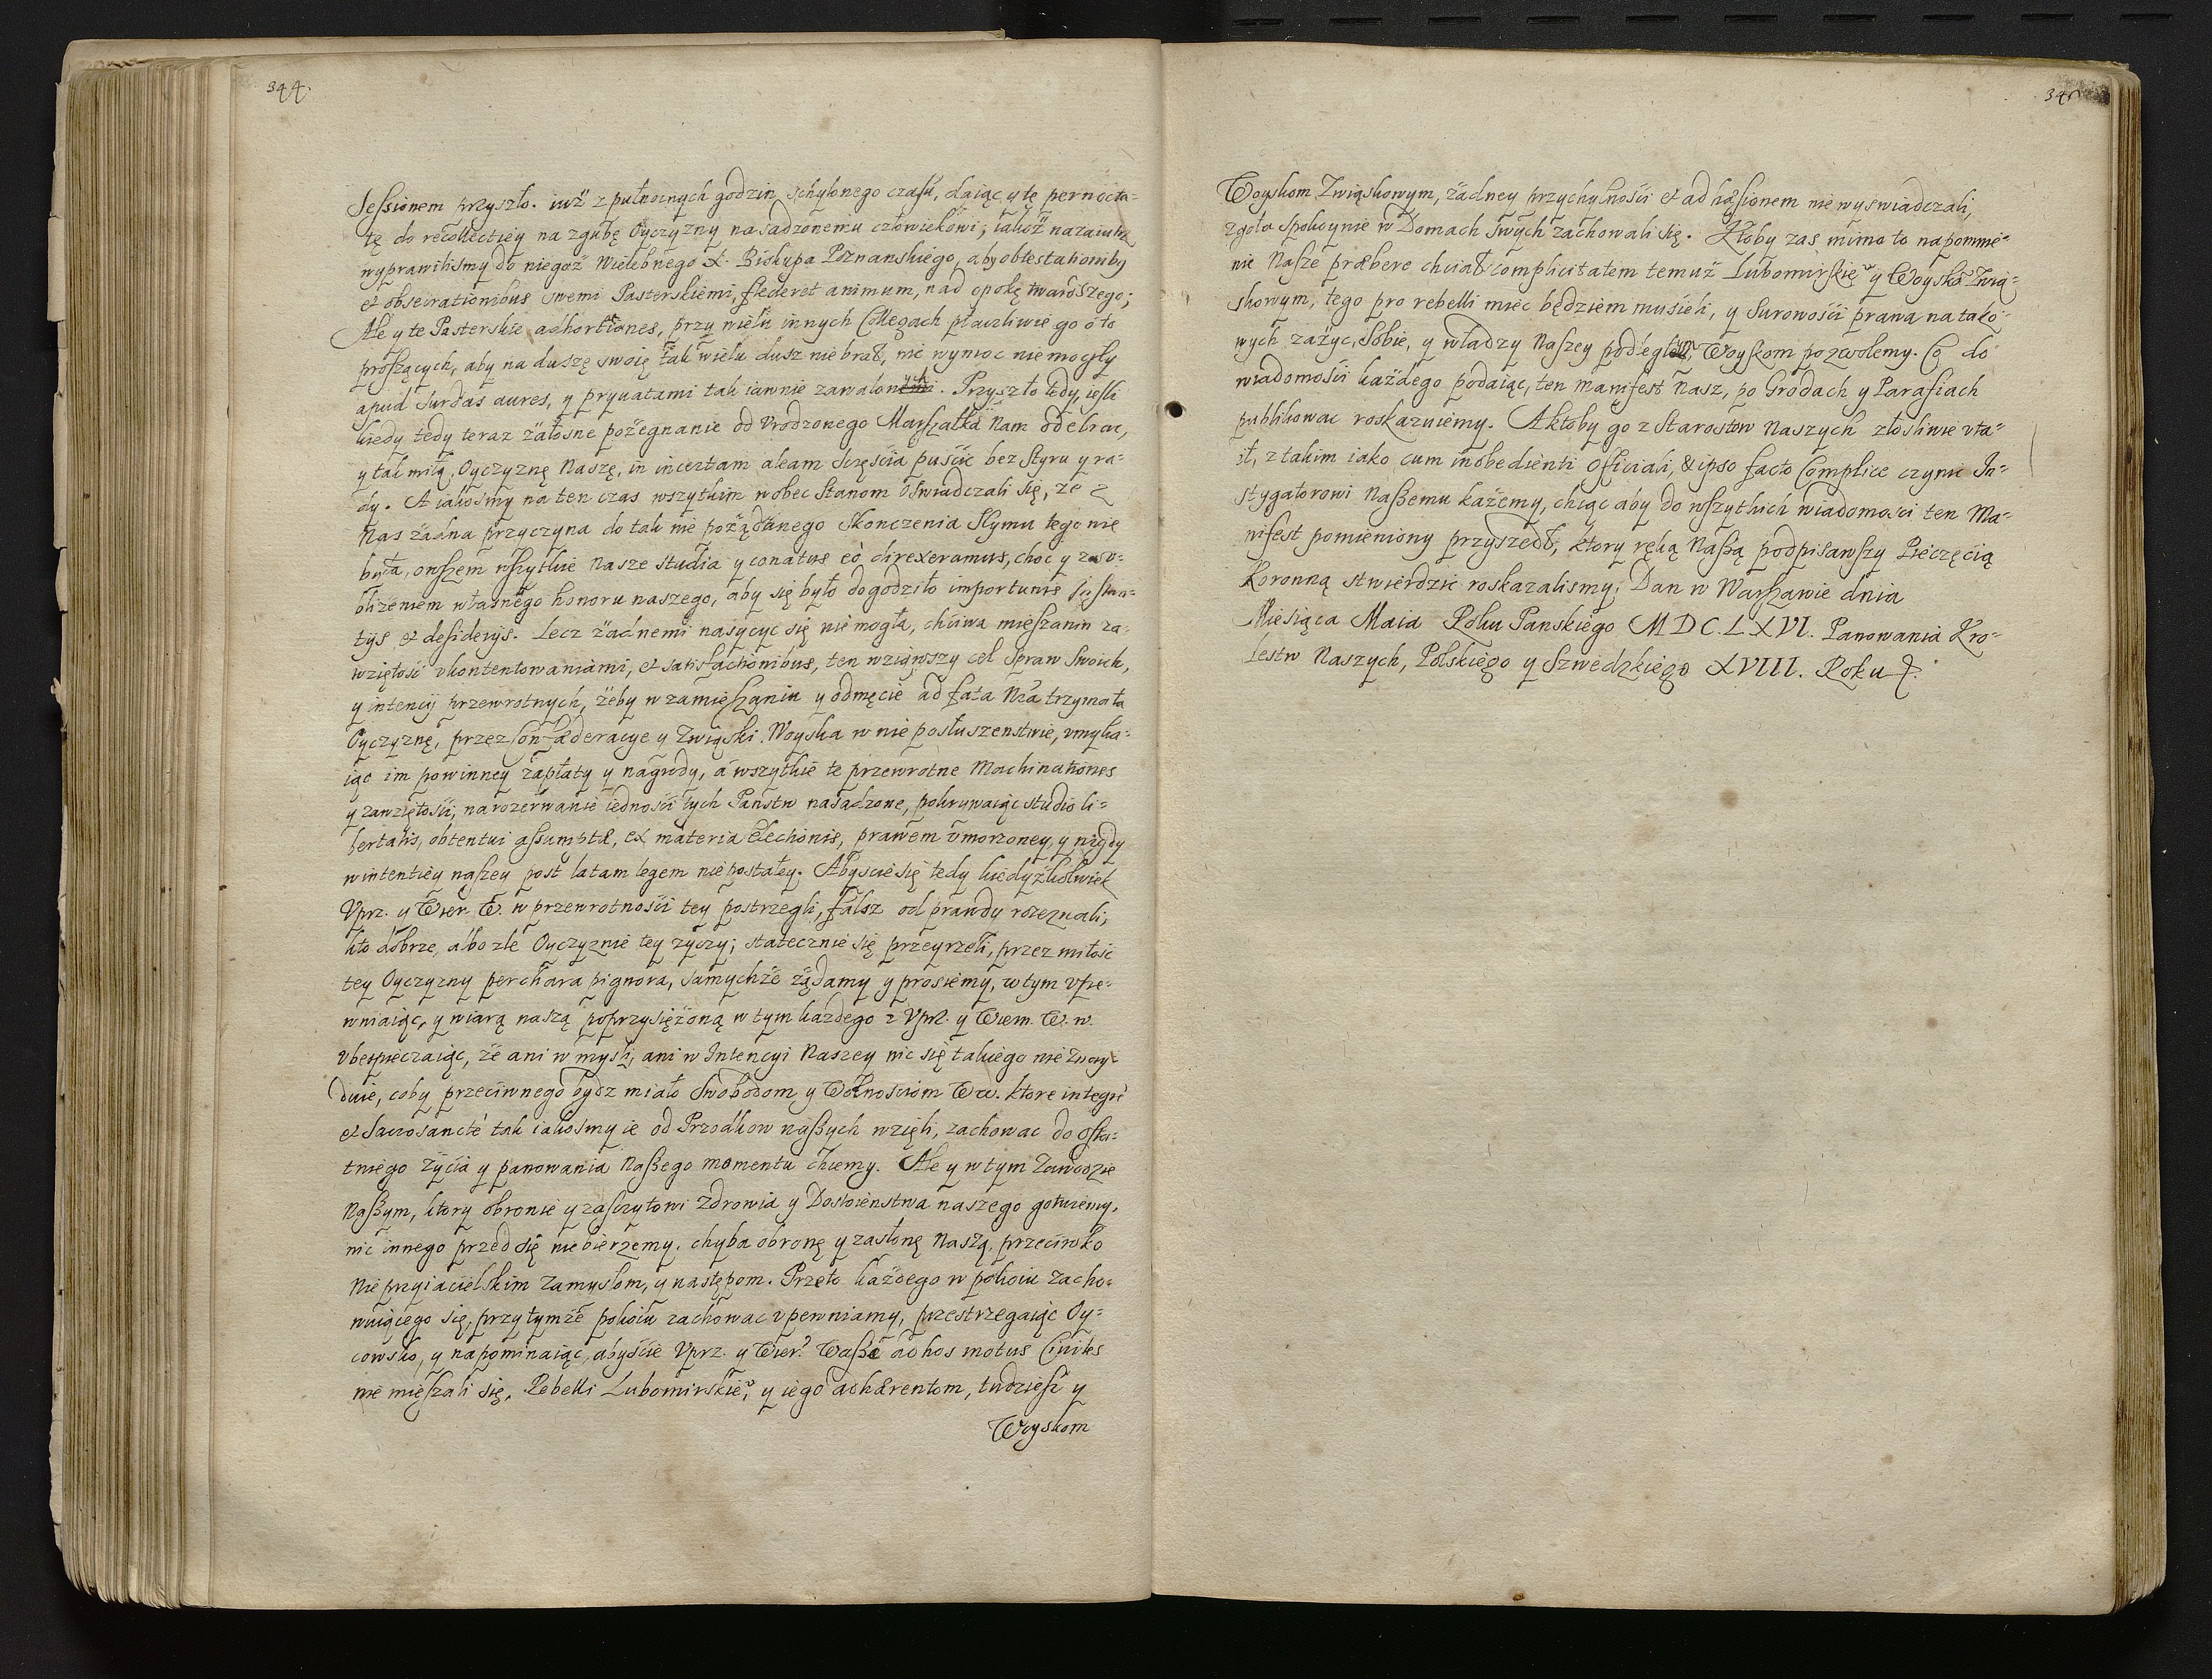 344.
Sessionem przyszło. iuż z pułnocnych godzin schylonego czasu, daiąc y tę pernocta-
tę do recollectiey na zgubę Oyczyzny nasadzonemu człowiekowi; iakoż nazaiutrz
wyprawilismy do niegoż Wielebnego X. Biskupa Poznanskiego, aby obtestationibus
et obsecrationibus swemi Pasterskiemi, flecteret animum, nad opokę twardszego;
Ale y te Pasterskie adhortationes, przy wielu innych Collegach płaczliwie go o to
proszących, aby na duszę swoię tak wielu dusz nie brał, nic wymoc nie mogły
apud surdas aures, y prywatami tak iawnie zawalone. Przyszło tedy, iesli
kiedy tedy teraz żałosne pożegnanie od Vrodzonego Marszałka Nam odebrac,
y tak miłą Oyczyznę Naszę, in incertam aleam sczęścia puścic bez styru y ra-
dy. A iakosmy na ten czas wszytkim wobec Stanom oświadczali się, że z
Nas żadna przyczyna do tak nie pożądanego skonczenia Seymu tego nie
była, owszem wszytkie Nasze studia y conatus eò direxeramus, choc y z v-
bliżeniem własnego honoru naszego, aby się było dogodziło importunis instan-
tijs et desiderijs. Lecz żadnemi nasycyc się nie mogła, chciwa mieszanin za-
wziętość vkontentowaniami, et satisfactionibus, ten wziąwszy cel spraw swoich,
y intencij przewrotnych, żeby w zamieszaniu y odmęcie ad fata Nra trzymała
Oyczyznę, przez Confæderacye y Związki Woyska w nie posłuszenstwie, vmyka-
iąc im powinney zapłaty y nagrody, a wszytkie te przewrotne Machinationes
y zawziętości, na rozerwanie iedności tych Panstw nasadzone, pokrywaiąc studio li-
bertatis, obtentui assumptæ, ex materia Electionis, prawem vmorzoney, y nigdy
w intentiey naszey post latam legem nie postałey. Abyscie się tedy kiedyżkolwiek
Vprz. y Wier. W. w przewrotności tey postrzegli, fałsz od prawdy rozeznali,
kto dobrze, albo zle Oyczyznie tey zyczy; statecznie się przeyrzeli, przez miłość
tey Oyczyzny perchara pignora, samychże żądamy y prosiemy, w tym vpe-
wniaiąc, y wiarą naszą poprzysiężoną w tym każdego z Vprz. y Wiern. W. w.
vbespieczaiąc, że ani w mysli, ani w Intencyi Naszey nic się takiego nie znay-
duie, coby przeciwnego bydz miało Swobodom y Wolnosciom Ww. ktore integrè
et Sacrosanctè tak iakosmy ie od Przodkow naszych wzięli, zachowac do osta-
tniego życia y panowania Naszego momentu chcemy. Ale y w tym Zawodzie
Naszym, ktory obronie y zasczytowi zdrowia y Dostoienstwa naszego gotuiemy,
nic innego przed się nie bierzemy, chyba obronę y zasłonę Naszą, przeciwko
Nie przyiacielskim zamysłom, y następom. Przeto każdego w pokoiu zacho-
wuiącego się, przytymże pokoiu zachowac vpewniamy, przestrzegaiąc Oy-
cowsko, y napominaiąc, abyście Vprz. y Wier. Wasze ad hos motus Civiles
nie mieszali się, Rebelli Lubomirskie°, y iego adhærentom, tudziesz y
Woyskom
Woyskom Związkowym, żadney przychylności et adhæsionem nie wyswiadczali,
zgoła spokoynie w Domach swych zachowali się. Ktoby zas mimo to napomnie-
nie Nasze præbere chciał complicitatem temuż Lubomirskie° y Woysko Zwią-
zkowym, tego pro rebelli miec będziem musieli, y surowości prawa na tako-
wych, zażyc, Sobie, y władzy Naszey podległym Woyskom pozwolemy. Co do
wiadomości każdego podaiąc, ten manifest Nasz, po Grodach y Parafiach
publikowac roskazuiemy. A ktoby go z Starostow Naszych złosliwie vta-
ił, z takim iako cum inobedienti Officiali, & ipso facto Complice czynic In-
stygatorowi Naszemu każemy, chcąc aby do wszytkich wiadomosci ten Ma-
nifest pomieniony przyszedł, ktory ręką Naszą podpisawszy Pieczęcią
Koronną stwierdzic roskazalismy; Dan w Warszawie dnia
Miesiąca Maia Roku Panskiego MDC.LXVI. Panowania Kro-
lestw Naszych, Polskiego y Szwedzkiego XVIII. Roku